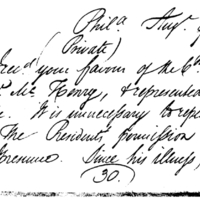 Phila. Augt. 9
(Private)
Recd. your favour of the 6th
Mc. Henry, & represented
e. It is unnecessary to rep
The Presidents permission
Since his illness,
30.